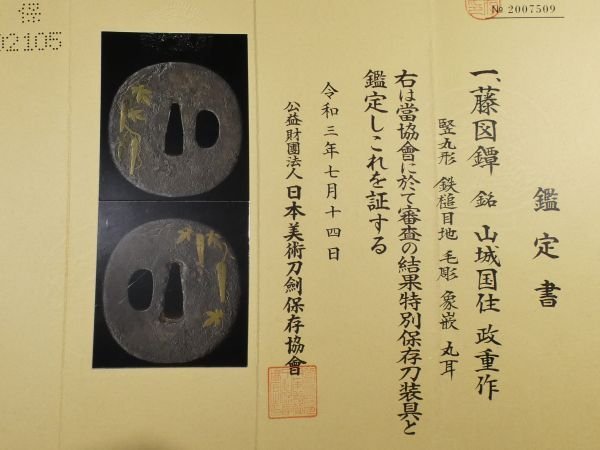 № 2007509
鑑定書
一、藤図鐔 銘 山城国住 政重作
竪丸形 鉄槌目地 毛彫 象嵌 丸耳
右は當協會に於て審査の結果特別保存刀装具と
鑑定しこれを証する
令和三年七月十四日
公益財團法人 日本美術刀劍保存協會
保
02105